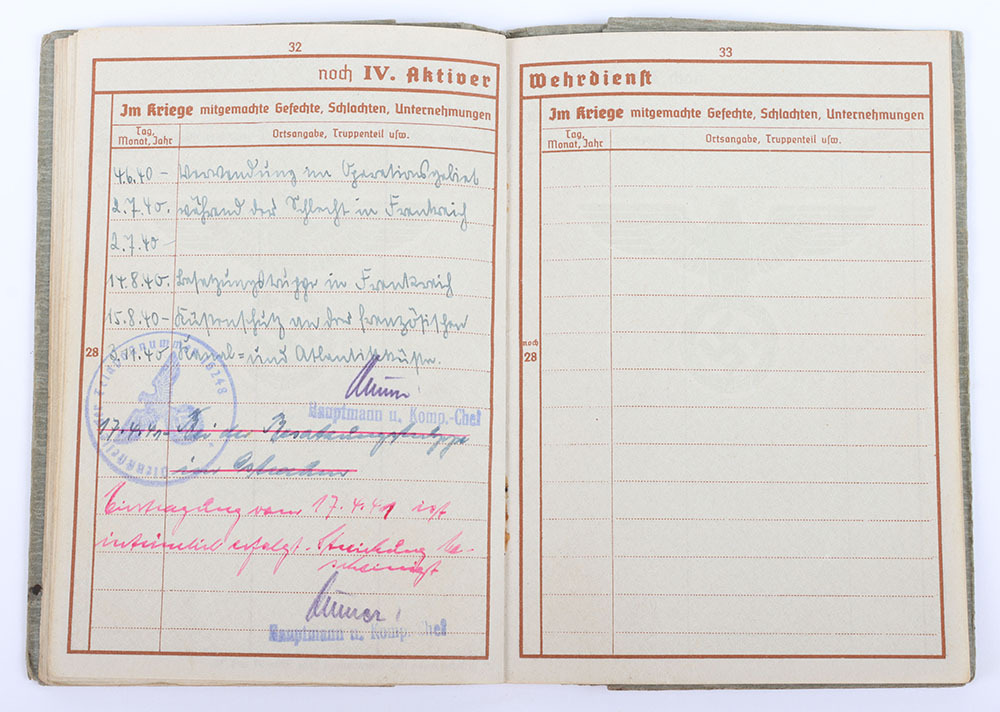 32
noch IV. Aktiver
Im Kriege mitgemachte Gefechte, Schlachten, Unternehmungen
Tag, Monat, Jahr
Ortsangabe, Truppenteil usw.
4.6.40 – Verwendung im Operationsgebiet
2.7.40. während der Schlacht in Frankreich
2.7.40 –
14.8.40. Besatzungstruppe in Frankreich
15.8.40 – Küstenschutz an der französischen
28
2.11.40 Kanal- und Atlantikküste.
Hauptmann u. Komp.-Chef
Feldpostnummer 18248
17.4.41 – Bei der Besatzungstruppe
im
Eintragung vom 17.4.41 ist
irrtümlich erfolgt. Streichung be-
scheinigt
Hauptmann u. Komp.-Chef
33
Wehrdienst
Im Kriege mitgemachte Gefechte, Schlachten, Unternehmungen
Tag, Monat, Jahr
Ortsangabe, Truppenteil usw.
noch
28